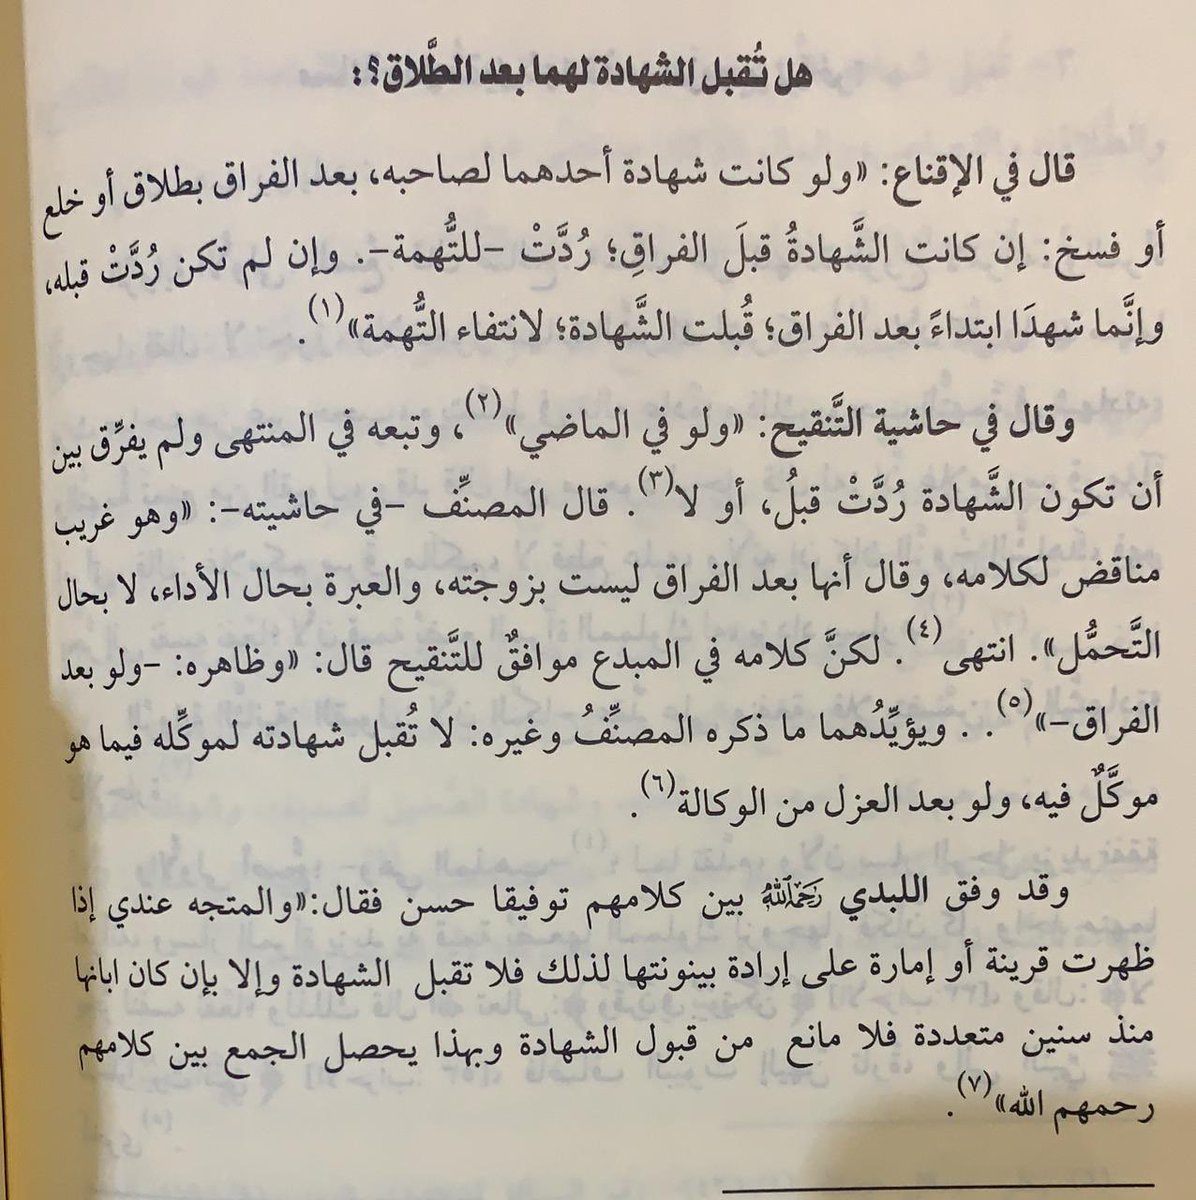 هل تُقبل الشهادة لهما بعد الطَّلاق؟:
قال في الإقناع: «ولو كانت شهادة أحدهما لصاحبه، بعد الفراق بطلاق أو خلع
أو فسخ: إن كانت الشَّهادةُ قبلَ الفراقِ؛ رُدَّتْ –للتُّهمة–. وإن لم تكن رُدَّتْ قبله،
وإنَّما شهدَا ابتداءً بعد الفراق؛ قُبلت الشَّهادة؛ لانتفاء التُّهمة»(١).
وقال في حاشية التَّنقيح: «ولو في الماضي»(٢)، وتبعه في المنتهى ولم يفرِّق بين
أن تكون الشَّهادة رُدَّتْ قبلُ، أو لا(٣). قال المصنِّف –في حاشيته–: «وهو غريب
مناقض لكلامه، وقال أنها بعد الفراق ليست بزوجته، والعبرة بحال الأداء، لا بحال
التَّحمُّل». انتهى(٤). لكنَّ كلامه في المبدع موافقٌ للتَّنقيح قال: «وظاهره: –ولو بعد
الفراق–»(٥). . ويؤيِّدُهما ما ذكره المصنِّفُ وغيره: لا تُقبل شهادته لموكِّله فيما هو
موكَّلٌ فيه، ولو بعد العزل من الوكالة(٦).
وقد وفق اللبدي رَحِمَهُ اللَّهُ بين كلامهم توفيقا حسن فقال:«والمتجه عندي إذا
ظهرت قرينة أو إمارة على إرادة بينونتها لذلك فلا تقبل الشهادة وإلا بإن كان ابانها
منذ سنين متعددة فلا مانع من قبول الشهادة وبهذا يحصل الجمع بين كلامهم
رحمهم الله»(٧).